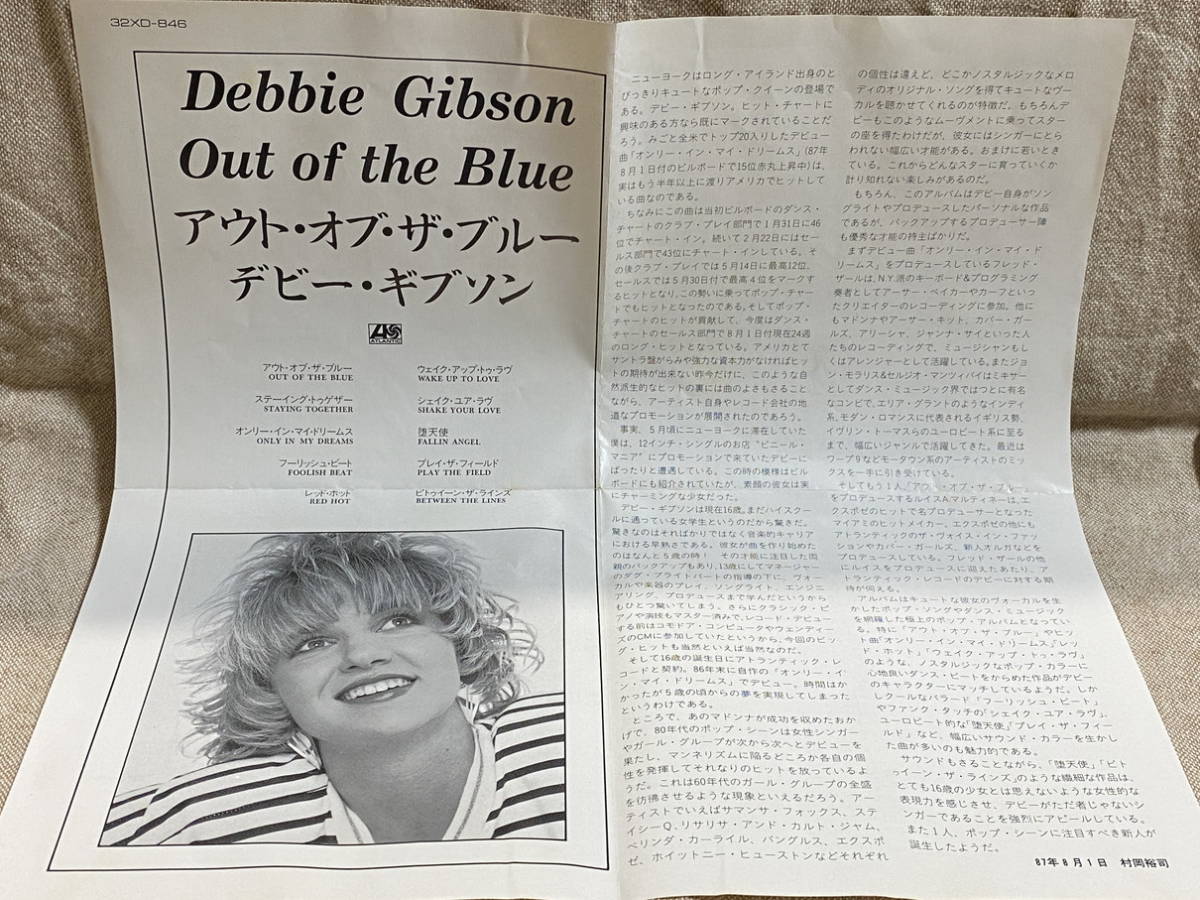 32XD-846
Debbie Gibson
Out of the Blue
アウト・オブ・ザ・ブルー
デビー・ギブソン
ATLANTIC
アウト・オブ・ザ・ブルー
OUT OF THE BLUE
ステーイング・トゥゲザー
STAYING TOGETHER
オンリー・イン・マイ・ドリームス
ONLY IN MY DREAMS
フーリッシュ・ビート
FOOLISH BEAT
レッド・ホット
RED HOT
ウェイク・アップ・トゥ・ラヴ
WAKE UP TO LOVE
シェイク・ユア・ラヴ
SHAKE YOUR LOVE
堕天使
FALLIN ANGEL
プレイ・ザ・フィールド
PLAY THE FIELD
ビトゥイーン・ザ・ラインズ
BETWEEN THE LINES
ニューヨークはロング・アイランド出身のと
びっきりキュートなポップ・クイーンの登場で
ある。デビー・ギブソン。ヒット・チャートに
興味のある方なら既にマークされていることだ
ろう。みごと全米でトップ20入りしたデビュー
曲「オンリー・イン・マイ・ドリームス」(87年
8月1日付のビルボードで15位赤丸上昇中)は、
実はもう半年以上に渡りアメリカでヒットして
いる曲なのである。
ちなみにこの曲は当初ビルボードのダンス・
チャートのクラブ・プレイ部門で1月31日に46
位でチャート・イン。続いて2月22日にはセー
ルス部門で43位にチャート・インしている。そ
の後クラブ・プレイでは5月14日に最高12位、
セールスでは5月30日付で最高4位をマークす
るヒットとなり、この勢いに乗ってポップ・チャー
トでもヒットとなったのである。そしてポップ・
チャートのヒットが貢献して、今度はダンス・
チャートのセールス部門で8月1日付現在24週
のロング・ヒットとなっている。アメリカとて
サントラ盤がらみや強力な資本力がなければヒッ
トの期待が出来ない昨今だけに、このような自
然派生的なヒットの裏には曲のよさもさること
ながら、アーティスト自身やレコード会社の地
道なプロモーションが展開されたのであろう。
事実、5月頃にニューヨークに滞在していた
僕は、12インチ・シングルのお店“ビニール・
マニア”にプロモーションで来ていたデビーに
ばったりと遭遇している。この時の模様はビル
ボードにも紹介されていたが、素顔の彼女は実
にチャーミングな少女だった。
デビー・ギブソンは現在16歳。まだハイスクー
ルに通っている女学生というのだから驚きだ。
驚きなのはそればかりではなく音楽的キャリア
における早熟さである。彼女が曲を作り始めた
のはなんと5歳の時! その才能に注目した両
親のバックアップもあり、13歳にしてマネージャー
のダグ・ブライトバートの指導の下に、ヴォー
カルや楽器のプレイ、ソングライト、エンジニ
アリング、プロデュースまで学んだというから
もひとつ驚いてしまう。さらにクラシック・ピ
アノや演技もマスター済みで、レコード・デビュー
する前はコモドア・コンピュータやウェンディー
ズのCMに参加していたというから、今回のビッ
グ・ヒットも当然といえば当然なのだ。
そして16歳の誕生日にアトランティック・レ
コードと契約。86年末に自作の「オンリー・イ
ン・マイ・ドリームス」でデビュー。時間はか
かったが5歳の頃からの夢を実現してしまった
というわけである。
ところで、あのマドンナが成功を収めたおか
げで、80年代のポップ・シーンは女性シンガー
やガール・グループが次から次へとデビューを
果たし、マンネリズムに陥るどころか各自の個
性を発揮してそれなりのヒットを放っているよ
うだ。これは60年代のガール・グループの全盛
を彷彿させるような現象といえるだろう。アー
ティストでいえばサマンサ・フォックス、ステ
イシーQ、リサリサ・アンド・カルト・ジャム、
ベリンダ・カーライル、バングルス、エクスポ
ゼ、ホイットニー・ヒューストンなどそれぞれ
の個性は違えど、どこかノスタルジックなメロ
ディのオリジナル・ソングを得てキュートなヴー
カルを聴かせてくれるのが特徴だ。もちろんデ
ビーもこのようなムーヴメントに乗ってスター
の座を得たわけだが、彼女にはシンガーにとら
われない幅広い才能がある。おまけに若いとき
ている。これからどんなスターに育っていくか
計り知れない楽しみがあるのだ。
もちろん、このアルバムはデビー自身がソン
グライトやプロデュースしたパーソナルな作品
であるが、バックアップするプロデューサー陣
も優秀な才能の持主ばかりだ。
まずデビュー曲「オンリー・イン・マイ・ド
リームス」をプロデュースしているフレッド・
ザールは、N.Y.派のキーボード&プログラミング
奏者としてアーサー・ベイカーやカーフといっ
たクリエイターのレコーディングに参加。他に
もマドンナやアーサー・キット、カバー・ガー
ルズ、アリーシャ、ジャンナ・サイといった人
たちのレコーディングで、ミュージシャンもし
くはアレンジャーとして活躍している。またジョ
ン・モラリス&セルジオ・マンツィバイはミキサー
としてダンス・ミュージック界ではつとに有名
なコンビで、エリア・グラントのようなインディ
系、モダン・ロマンスに代表されるイギリス勢、
イヴリン・トーマスらのユーロビート系に至る
まで、幅広いジャンルで活躍してきた。最近は
ワープ9などモータウン系のアーティストのミッ
クスを一手に引き受けている。
そしてもう1人、「アウト・オブ・ザ・ブルー」
をプロデュースするルイスA.マルティネーは、エ
クスポゼのヒットで名プロデューサーとなった
マイアミのヒットメイカー。エクスポゼの他にも
アトランティックのザ・ヴォイス・イン・ファッ
ションやカバー・ガールズ、新人オルガなどを
プロデュースしている。フレッド・ザールの他
にルイスをプロデュースに迎えたあたり、ア
トランティック・レコードのデビーに対する期
待が伺える。
アルバムはキュートな彼女のヴォーカルを生
かしたポップ・ソングやダンス・ミュージック
を網羅した極上のポップ・アルバムとなってい
る。特に「アウト・オブ・ザ・ブルー」やヒッ
ト曲「オンリー・イン・マイ・ドリームス」「レッ
ド・ホット」「ウェイク・アップ・トゥ・ラヴ」
のような、ノスタルジックなポップ・カラーに
心地良いダンス・ビートをからめた作品がデビー
のキャラクターにマッチしているようだ。しか
しクールなバラード「フーリッシュ・ビート」
やファンク・タッチの「シェイク・ユア・ラヴ」、
ユーロビート的な「堕天使」「プレイ・ザ・フィー
ルド」など、幅広いサウンド・カラーを生かし
た曲が多いのも魅力的である。
サウンドもさることながら、「堕天使」「ビト
ゥイーン・ザ・ラインズ」のような繊細な作品は、
とても16歳の少女とは思えないような女性的な
表現力を感じさせ、デビーがただ者じゃないシン
ガーであることを強烈にアピールしている。
また1人、ポップ・シーンに注目すべき新人が
誕生したようだ。
87年8月1日 村岡裕司